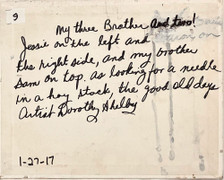 9
My three Brother and two!
Jessie on the left and
the right side, and my brother
Sam on top. as looking for a needle
in a hay stack, the good old days
Artist Dorothy Shelby
1-27-17